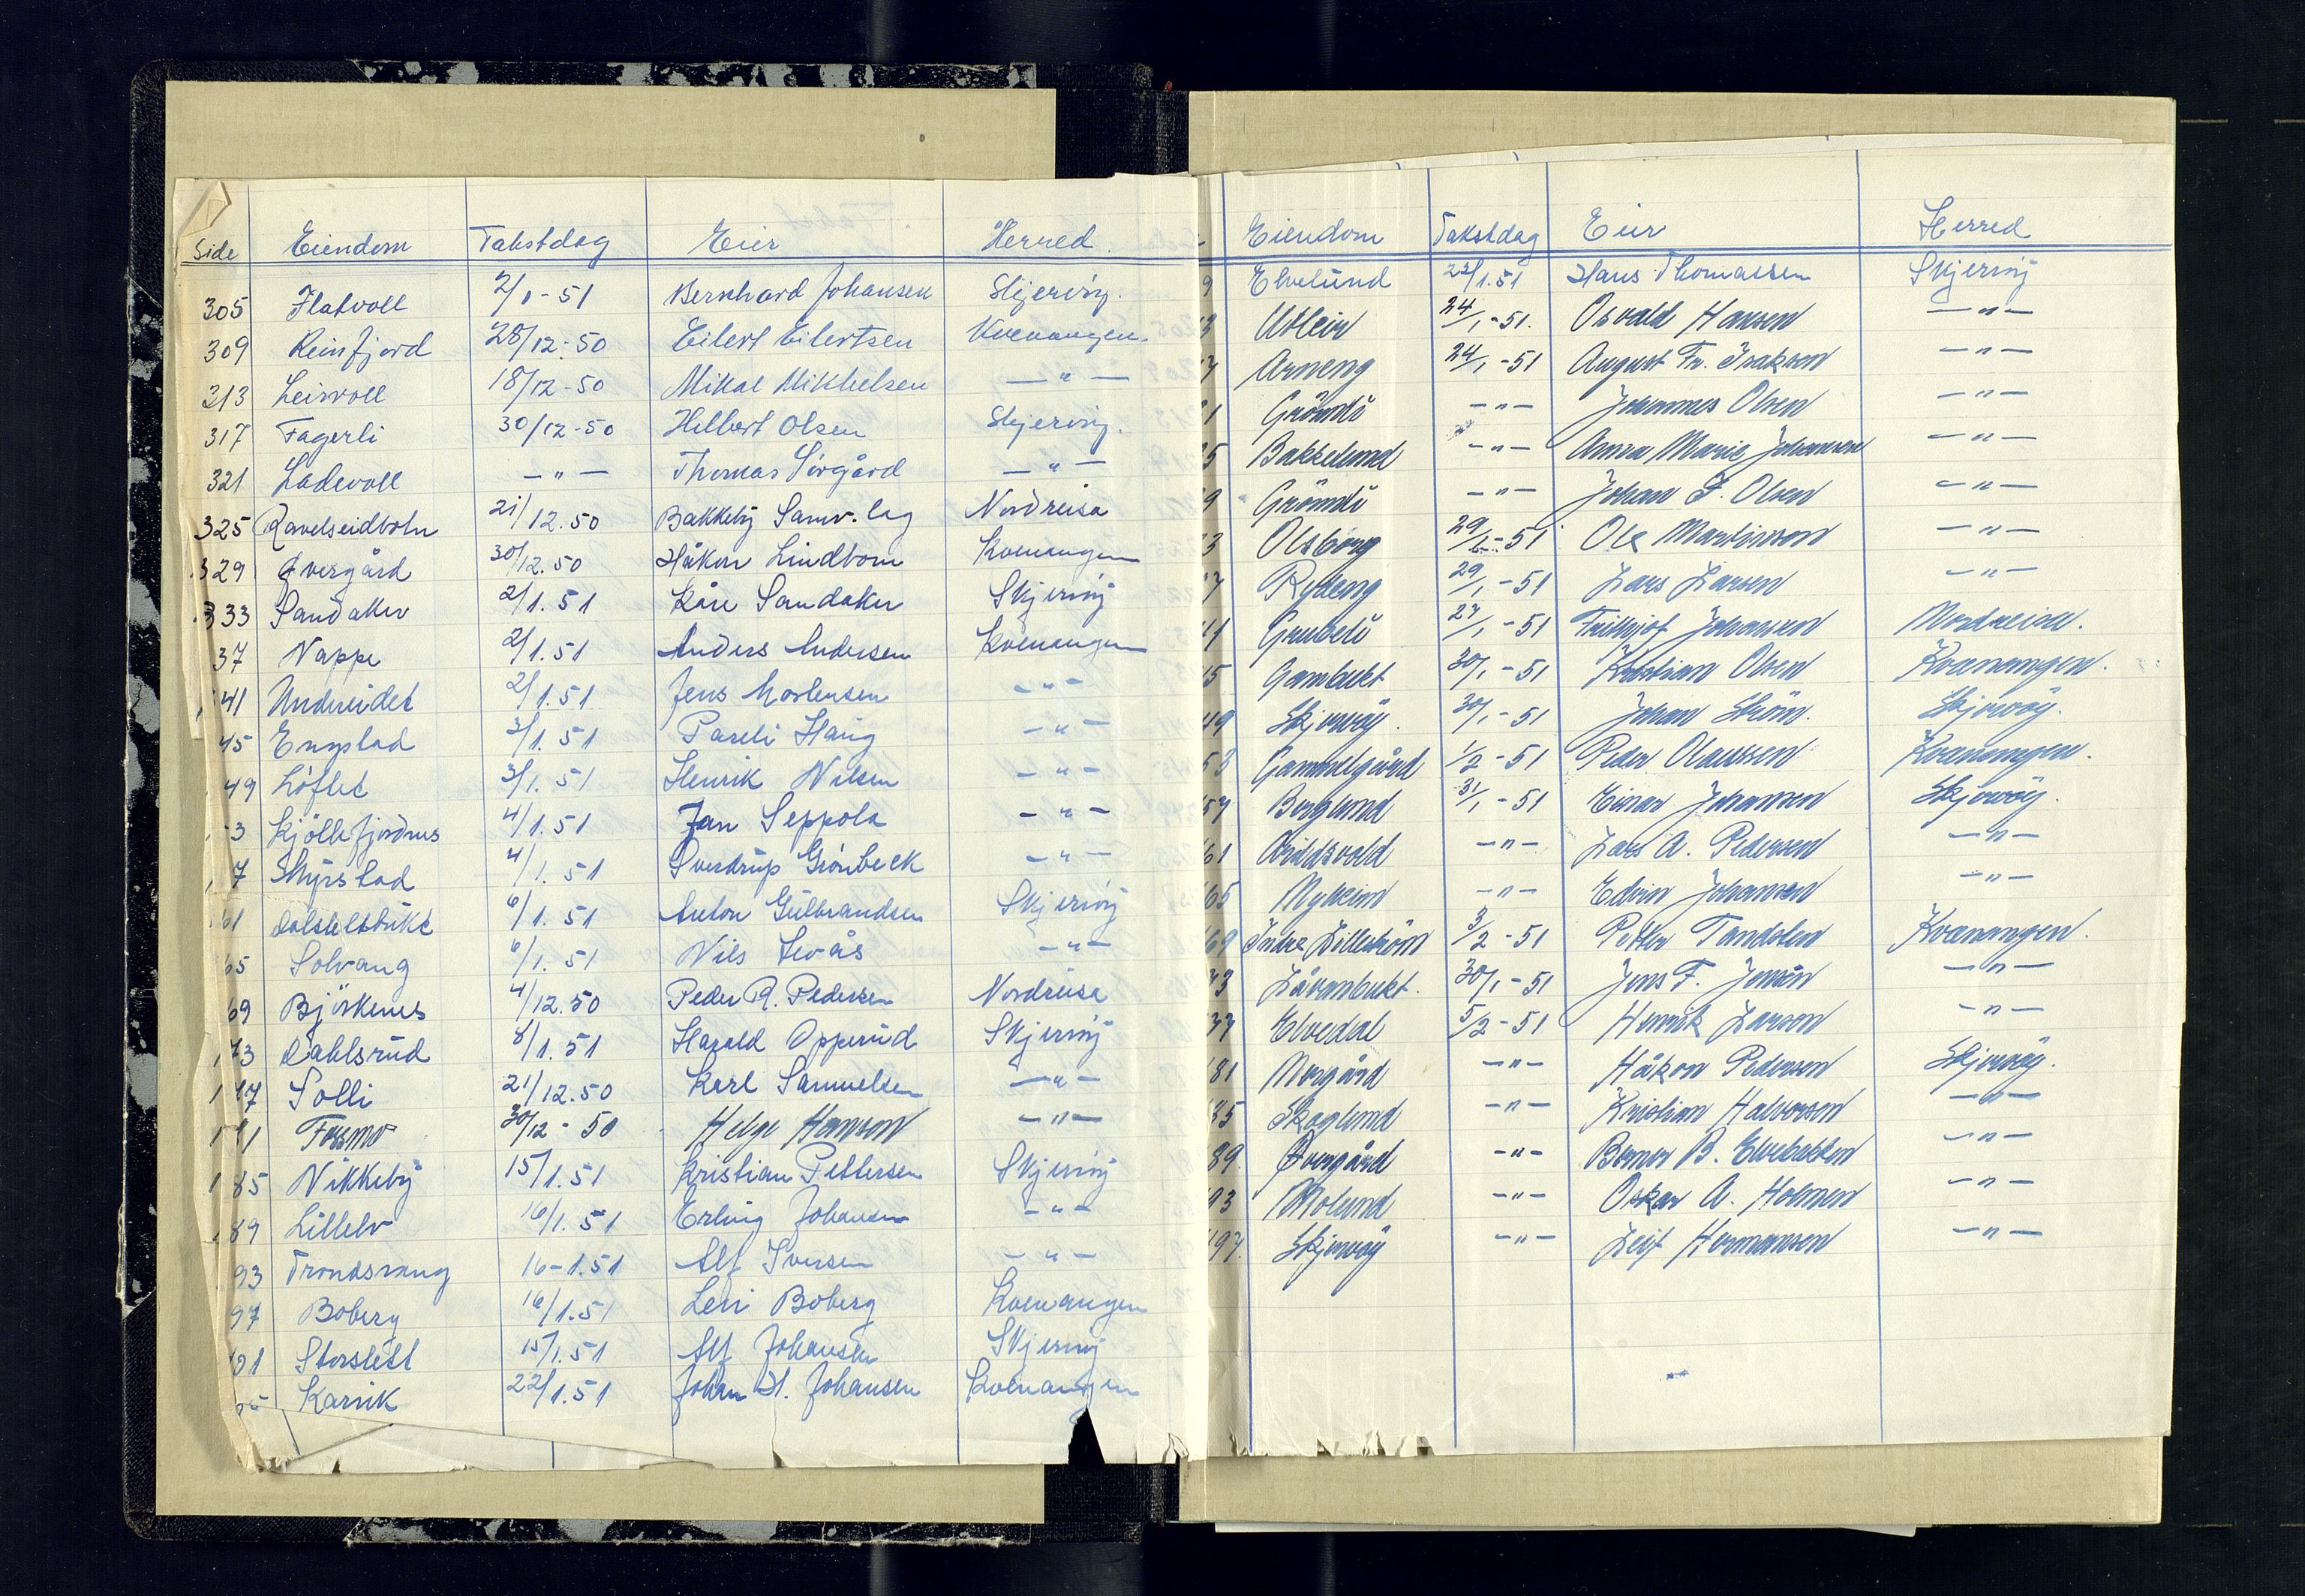 Side Eiendom Takstdag Eier Herred
305 Flatvoll 2/1-51 Bernhard Johansen Skjervöy.
309 Reinfjord 28/12-50 Eilert Eilertsen Kvenangen.
313 Leirvoll 18/12-50 Mikal Mikkelsen —"—
317 Fagerli 30/12-50 Hilbert Olsen Skjervöy.
321 Ladevoll —"— Thomas Sörgård —"—
325 Ravelseidbotn 21/12.50 Bakkeby Samv.lag Nordreisa
329 Övergård 30/12.50 Håkon Lindbom Kvenangen
333 Sandaker 2/1.51 Kåre Sandaker Skjervöy
37 Nappe 2/1.51 Anders Andersen Kvenangen
41 Undereidet 2/1.51 Jens Mortensen —"—
45 Engstad 3/1.51 Pareli Haug —"—
49 Löftet 3/1.51 Henrik Nilsen —"—
3 Kjöllefjordnes 4/1.51 Jan Seppola —"—
7 Myrstad 4/1.51 Sverdrup Grönbeck —"—
61 4/1.51 Anton Gulbrandsen Skjervöy
65 Solvang 6/1.51 Nils Levås —"—
69 Björkenes 4/12.50 Peder R. Pedersen Nordreisa
73 Dahlsrud 8/1.51 Harald Opperud Skjervöy
77 Solli 21/12.50 Karl Samuelsen —"—
Fossmo 30/12-50 Helge Hansen —"—
85 Nikkeby 15/1.51 Kristian Pettersen Skjervöy
89 Lillelv 16/1.51 Erling Johansen —"—
93 Trondsvang 16-1.51 Alf Iversen —"—
97 Boberg 16/1.51 Leri Boberg Kvenangen
01 Storslett 15/1.51 Alf Johansen Skjervöy
Karvik 22/1.51 Johan H. Johansen Kvenangen
Eiendom Takstdag Eier Herred
9 Elvelund 22/1.51 Hans Thomassen Skjervöy
3 Utleir 24/1-51. Osvald Hansen —"—
7 Arneng 24/1-51 August Fr. Isaksen —"—
1 Grönnli —"— Johannes Olsen —"—
5 Bakkelund —"— Anna Marie Johansen —"—
9 Grönnli —"— Johan F. Olsen —"—
3 Olsborg 29/1-51 Ole Martinsen —"—
7 Ryeng 29/1-51 Lars Larsen —"—
41 Grubeli 27/1-51 Frithjof Johansen Nordreisa.
45 Gambukt 30/1-51 Kristian Olsen Kvænangen.
49 Skjervöy. 30/1-51 Johan Ström. Skjervöy.
53 Gammelgård 1/2-51 Peder Olaussen Kvænangen.
57 Berglund 31/1-51 Einar Johansen Skjervöy.
61 Arildsvold —"— Lars A. Pedersen —"—
65 Myheim —"— Edvin Johansen —"—
69 Indre Lilleström 3/2-51 Petter Tandslen Kvænangen.
73 Låvanbukt. 30/1-51 Jens F. Jensen —"—
77 Elvedal 5/2-51 Henrik Larsen —"—
81 Norgård —"— Håkon Pedersen Skjervöy.
85 Skoglund —"— Kristian Halvorsen —"—
89. Övergård —"— Berner B. Elvebakken —"—
93 Molund —"— Oskar A. Holmen —"—
97. Skjervöy —"— Leif Hermansen —"—